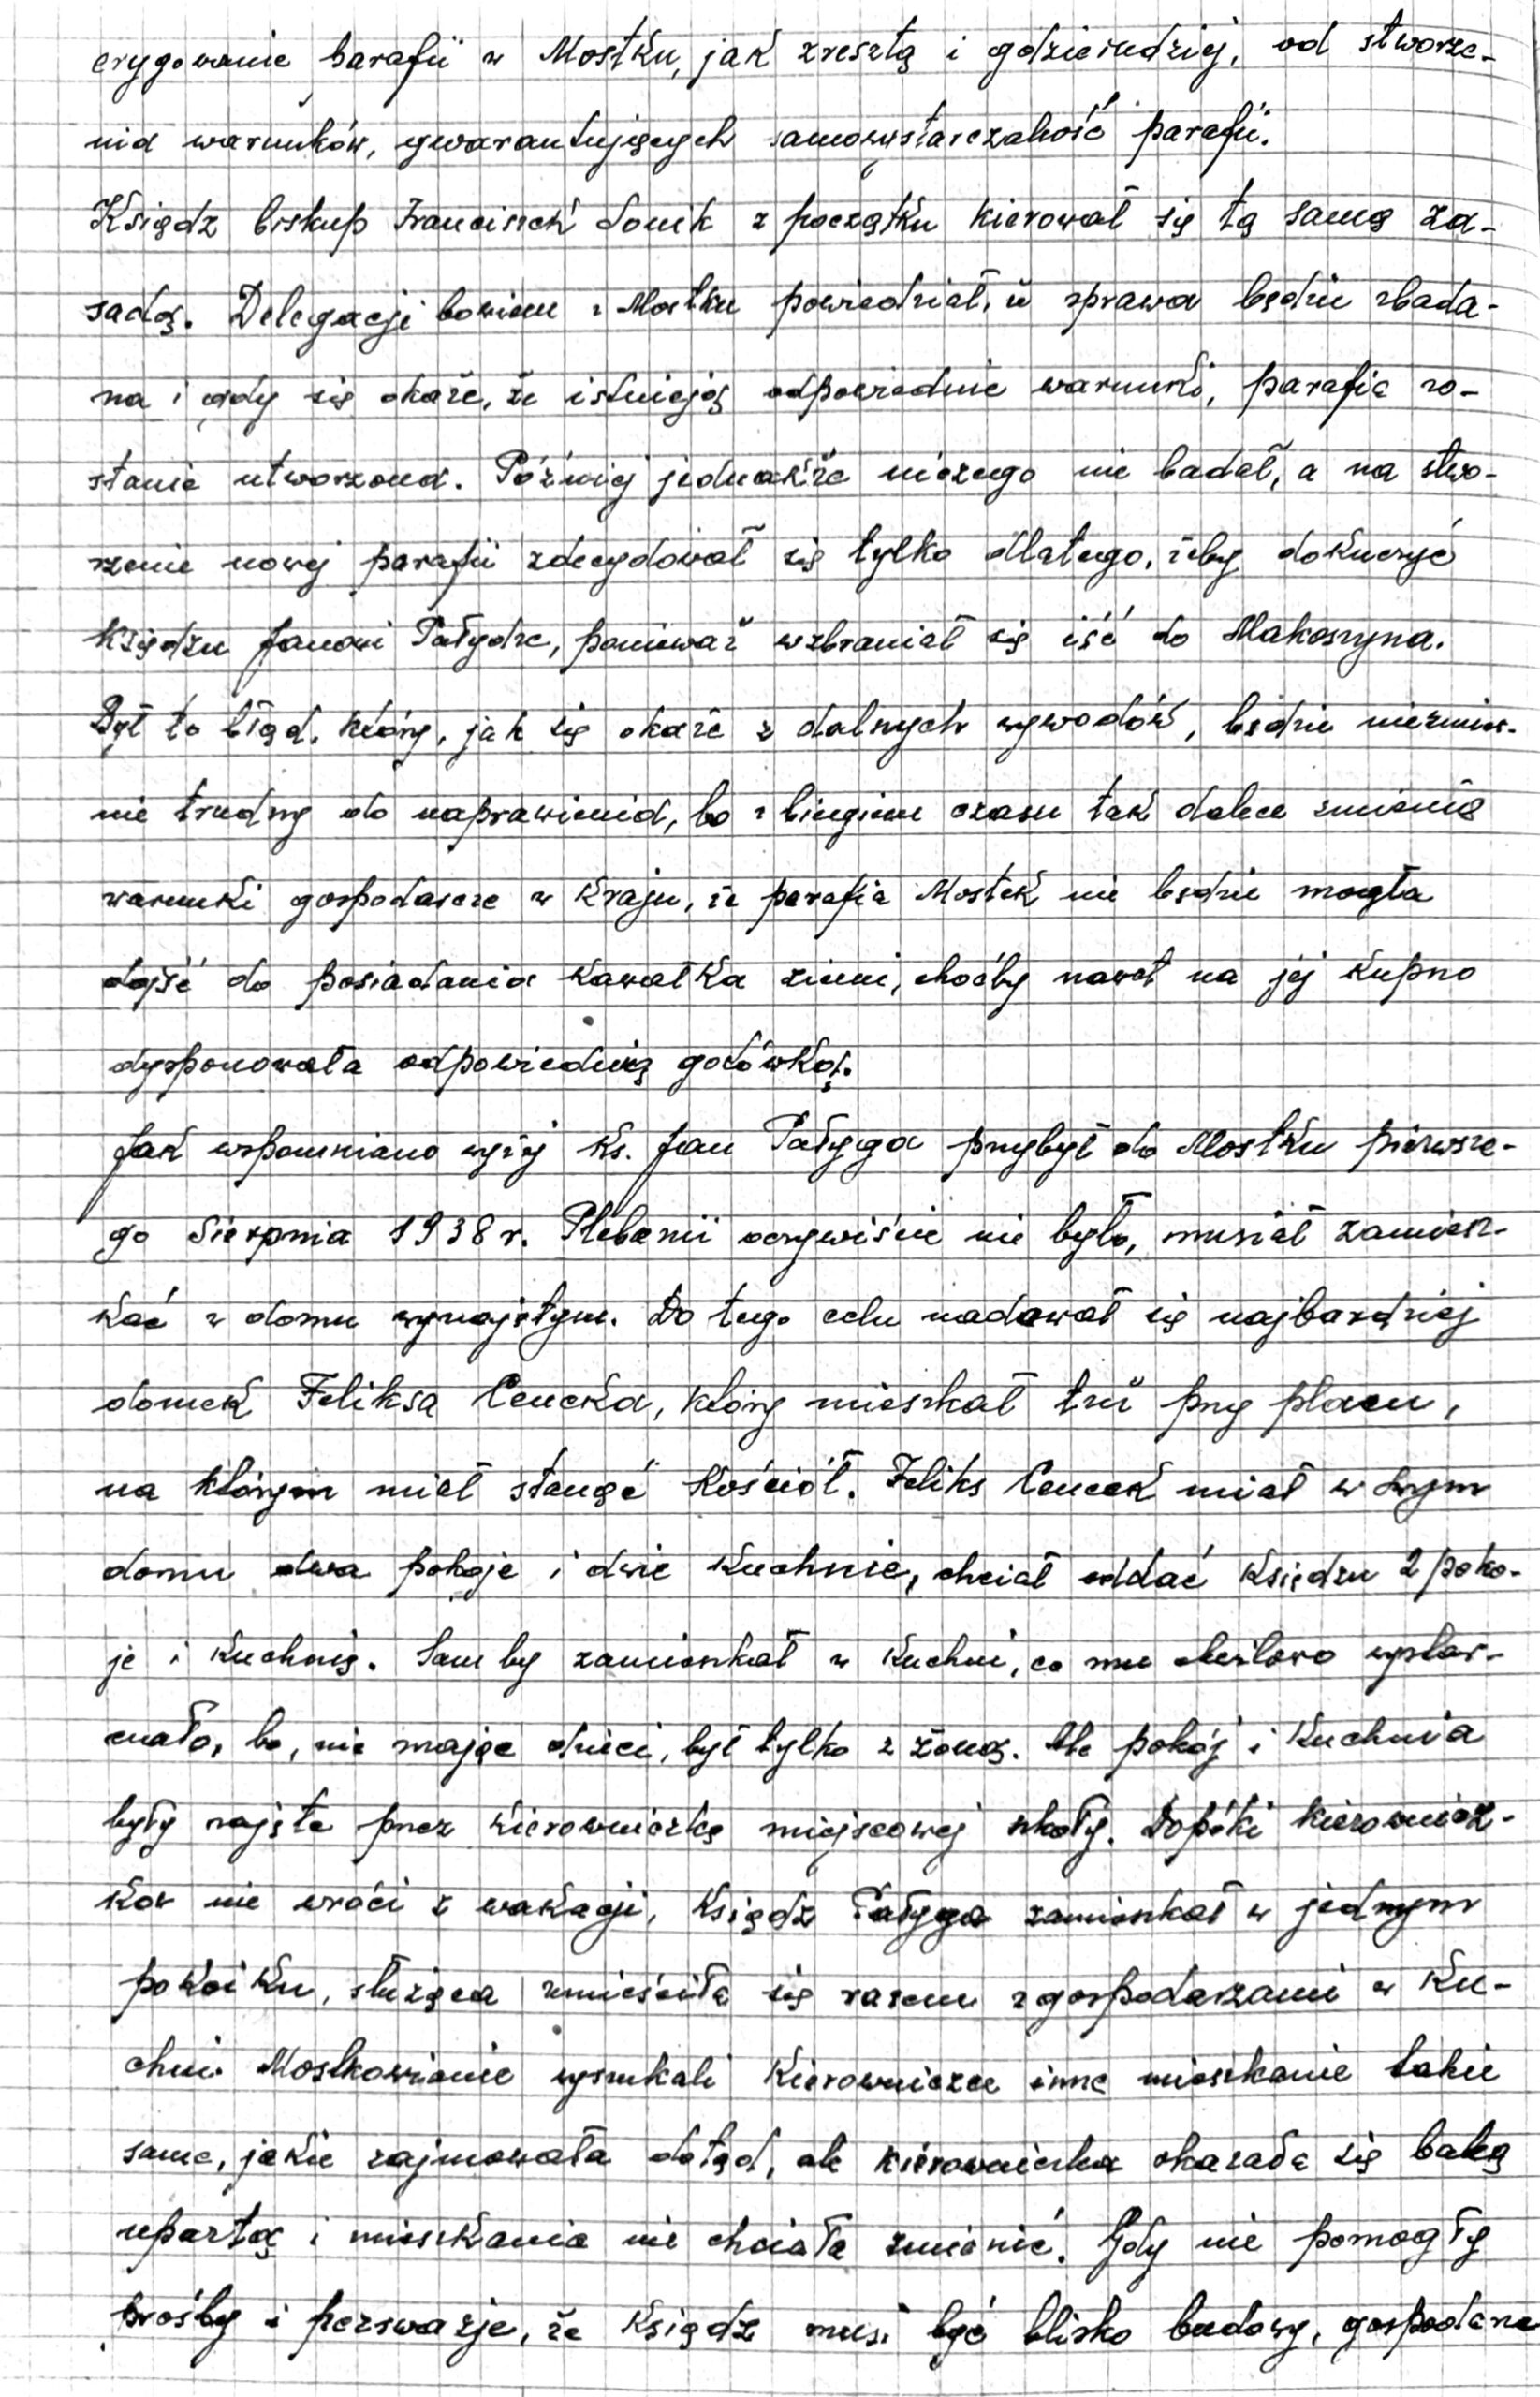 erygowanie parafii w Mostku, jak zresztą i gdzieindziej, od stworze-
nia warunków, gwarantujących samowystarczalność parafii.
Ksiądz biskup Franciszek Sonik z początku kierował się tą samą za-
sadą. Delegacji bowiem z Mostku powiedział, iż sprawa będzie zbada-
na i gdy się okaże, że istnieją odpowiednie warunki, parafia zo-
stanie utworzona. Później jednakże niczego nie badał, a na stwo-
rzenie nowej parafii zdecydował się tylko dlatego, żeby dokuczyć
księdzu Janowi Pałydze, ponieważ wzbraniał się iść do Makoszyna.
Był to błąd, który, jak się okaże z dalszych wywodów, będzie niezmier-
nie trudny do naprawienia, bo z biegiem czasu tak dalece zmienią
warunki gospodarcze w kraju, że parafia Mostek nie będzie mogła
dojść do posiadania kawałka ziemi, choćby nawet na jej kupno
dysponowała odpowiednią gotówką.
Jak wspomniano wyżej ks. Jan Pałyga przybył do Mostku pierwsze-
go Sierpnia 1938 r. Plebanii oczywiście nie było, musiał zamiesz-
kać w domu wynajętym. Do tego celu nadawał się najbardziej
domek Feliksa Cencka, który mieszkał tuż przy placu,
na którym miał stanąć kościół. Feliks Cencek miał w swym
domu dwa pokoje i dwie kuchnie, chciał oddać księdzu 2 poko-
je i kuchnię. Sam by zamieszkał w kuchni, co mu chwilowo wystar-
czało, bo, nie mając dzieci, był tylko z żoną. Ale pokój i kuchnia
były zajęte przez kierowniczkę miejscowej szkoły. Dopóki kierownicz-
ka nie wróci z wakacji, Ksiądz Pałyga zamieszkał w jednym
pokoiku, służąca zmieściła się razem z gospodarzami w ku-
chni. Mostkowianie wyszukali kierowniczce inne mieszkanie takie
same, jakie zajmowała dotąd, ale kierowniczka okazała się babą
upartą i mieszkania nie chciała zmienić. Gdy nie pomogły
prośby i perswazje, że ksiądz musi być blisko budowy, gospodarze